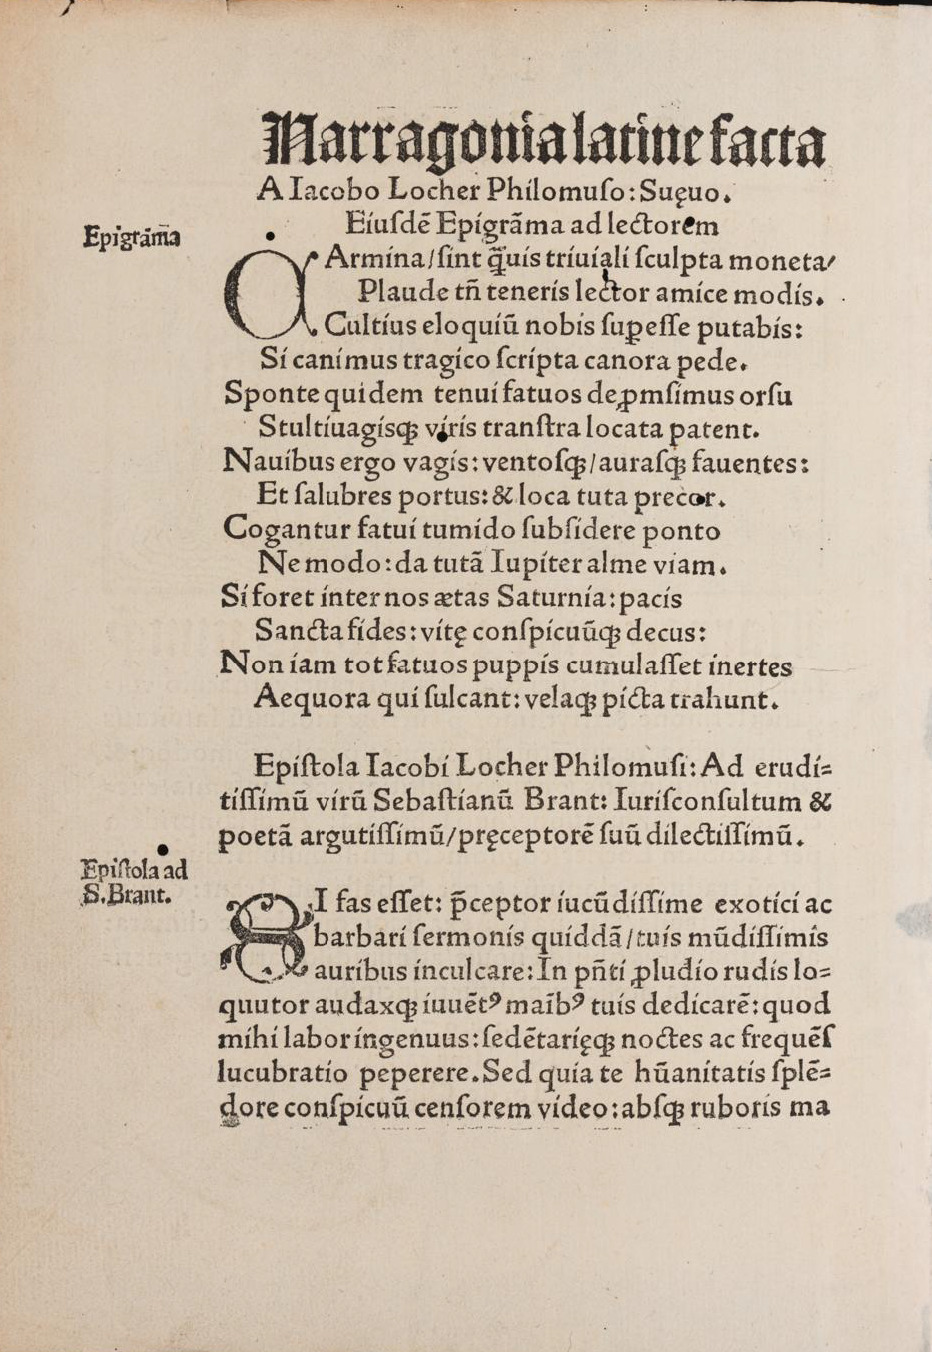 Narragonia latine facta
A Iacobo Locher Philomuſo: Suęuo.
Eiuſdē Epigrāma ad lectorem
Epigrāma
CArmina/ſint q̄uis triuiali ſculpta moneta/
Plaude tñ teneris lector amice modis.
Cultius eloquiū nobis ſuꝑeſſe putabis:
Si canimus tragico ſcripta canora pede.
Sponte quidem tenui fatuos deꝓmſimus orſu
Stultiuagiſqꝫ viris tranſtra locata patent.
Nauibus ergo vagis: ventoſqꝫ/auraſqꝫ fauentes:
Et ſalubres portus: & loca tuta precor.
Cogantur fatui tumido ſubſidere ponto
Ne modo: da tutā Iupiter alme viam.
Si foret inter nos ætas Saturnia: pacis
Sancta fides: vitę conſpicuūqꝫ decus:
Non iam tot fatuos puppis cumulaſſet inertes
Aequora qui ſulcant: velaqꝫ picta trahunt.
Epiſtola Iacobi Locher Philomuſi: Ad erudi=
tiſſimū virū Sebaſtianū Brant: Iuriſconſultum &
poetā argutiſſimū/pręceptorē ſuū dilectiſſimū.
Epiſtola ad
S. Brant.
SI fas eſſet: p̄ceptor iucūdiſſime exotici ac
barbari ſermonis quiddā/tuis mūdiſſimis
auribus inculcare: In pñti ꝓludio rudis lo=
quutor audaxqꝫ iuuētꝰ maībꝰ tuis dedicarē: quod
mihi labor ingenuus: ſedētarięqꝫ noctes ac frequēſ
lucubratio peperere. Sed quia te hūanitatis ſplē=
dore conſpicuū cenſorem video: abſqꝫ ruboris ma